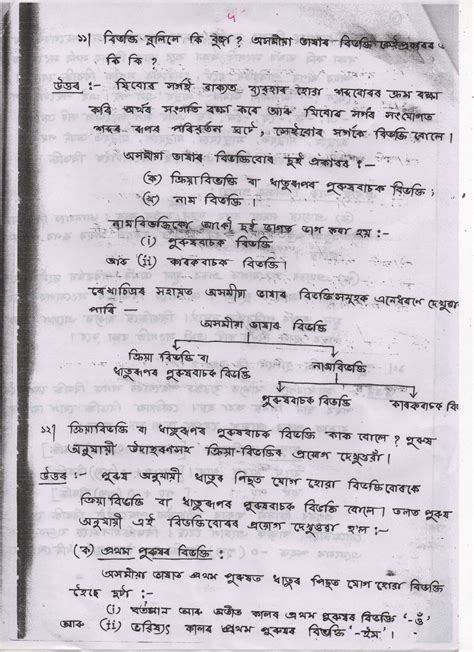 ৫
১১| বিভক্তি বুলিলে কি বুজা ? অসমীয়া ভাষাৰ বিভক্তি কেইপ্ৰকাৰৰ
কি কি ?
উত্তৰ :- যিবোৰ সৰ্গই বাক্যত ব্যৱহাৰ হোৱা শব্দবোৰৰ ক্ৰম ৰক্ষা
কৰি অৰ্থৰ সংগতি ৰক্ষা কৰে আৰু যিবোৰ সৰ্গৰ সংযোগত
শব্দৰ ৰূপৰ পৰিবৰ্তন ঘটে, সেইবোৰ সৰ্গকে বিভক্তি বোলে।
অসমীয়া ভাষাৰ বিভক্তিবোৰ দুই প্ৰকাৰৰ :-
(ক) ক্ৰিয়াবিভক্তি বা ধাতুৰূপৰ পুৰুষবাচক বিভক্তি ;
(খ) নাম বিভক্তি ।
নামবিভক্তিকো আকৌ দুই ভাগত ভাগ কৰা হয় :-
(i) পুৰুষবাচক বিভক্তি
আৰু (ii) কাৰকবাচক বিভক্তি ।
ৰেখাচিত্ৰৰ সহায়ত অসমীয়া ভাষাৰ বিভক্তিসমূহক এনেধৰণে দেখুৱাব
পাৰি —
অসমীয়া ভাষাৰ বিভক্তি
ক্ৰিয়া বিভক্তি বা
ধাতুৰূপৰ পুৰুষবাচক বিভক্তি
নামবিভক্তি
পুৰুষবাচক বিভক্তি
কাৰকবাচক বিভক্তি
১২| ক্ৰিয়াবিভক্তি বা ধাতুৰূপৰ পুৰুষবাচক বিভক্তি কাক বোলে ? পুৰুষ
অনুযায়ী উদাহৰণসহ ক্ৰিয়া-বিভক্তিৰ প্ৰয়োগ দেখুওৱাঁ।
উত্তৰ :- পুৰুষ অনুযায়ী ধাতুৰ পিছত যোগ হোৱা বিভক্তিবোৰকে
ক্ৰিয়াবিভক্তি বা ধাতুৰূপৰ পুৰুষবাচক বিভক্তি বোলে। তলত পুৰুষ
অনুযায়ী এই বিভক্তিবোৰৰ প্ৰয়োগ দেখুওৱা হ'ল :-
(ক) প্ৰথম পুৰুষৰ বিভক্তি :
অসমীয়া ভাষাত প্ৰথম পুৰুষত ধাতুৰ পিছত যোগ হোৱা বিভক্তি
হৈছে দুটা :-
(i) বৰ্তমান আৰু অতীত কালৰ প্ৰথম পুৰুষৰ বিভক্তি '-ওঁ'
আৰু (ii) ভৱিষ্যৎ কালৰ প্ৰথম পুৰুষৰ বিভক্তি '-ইম'।